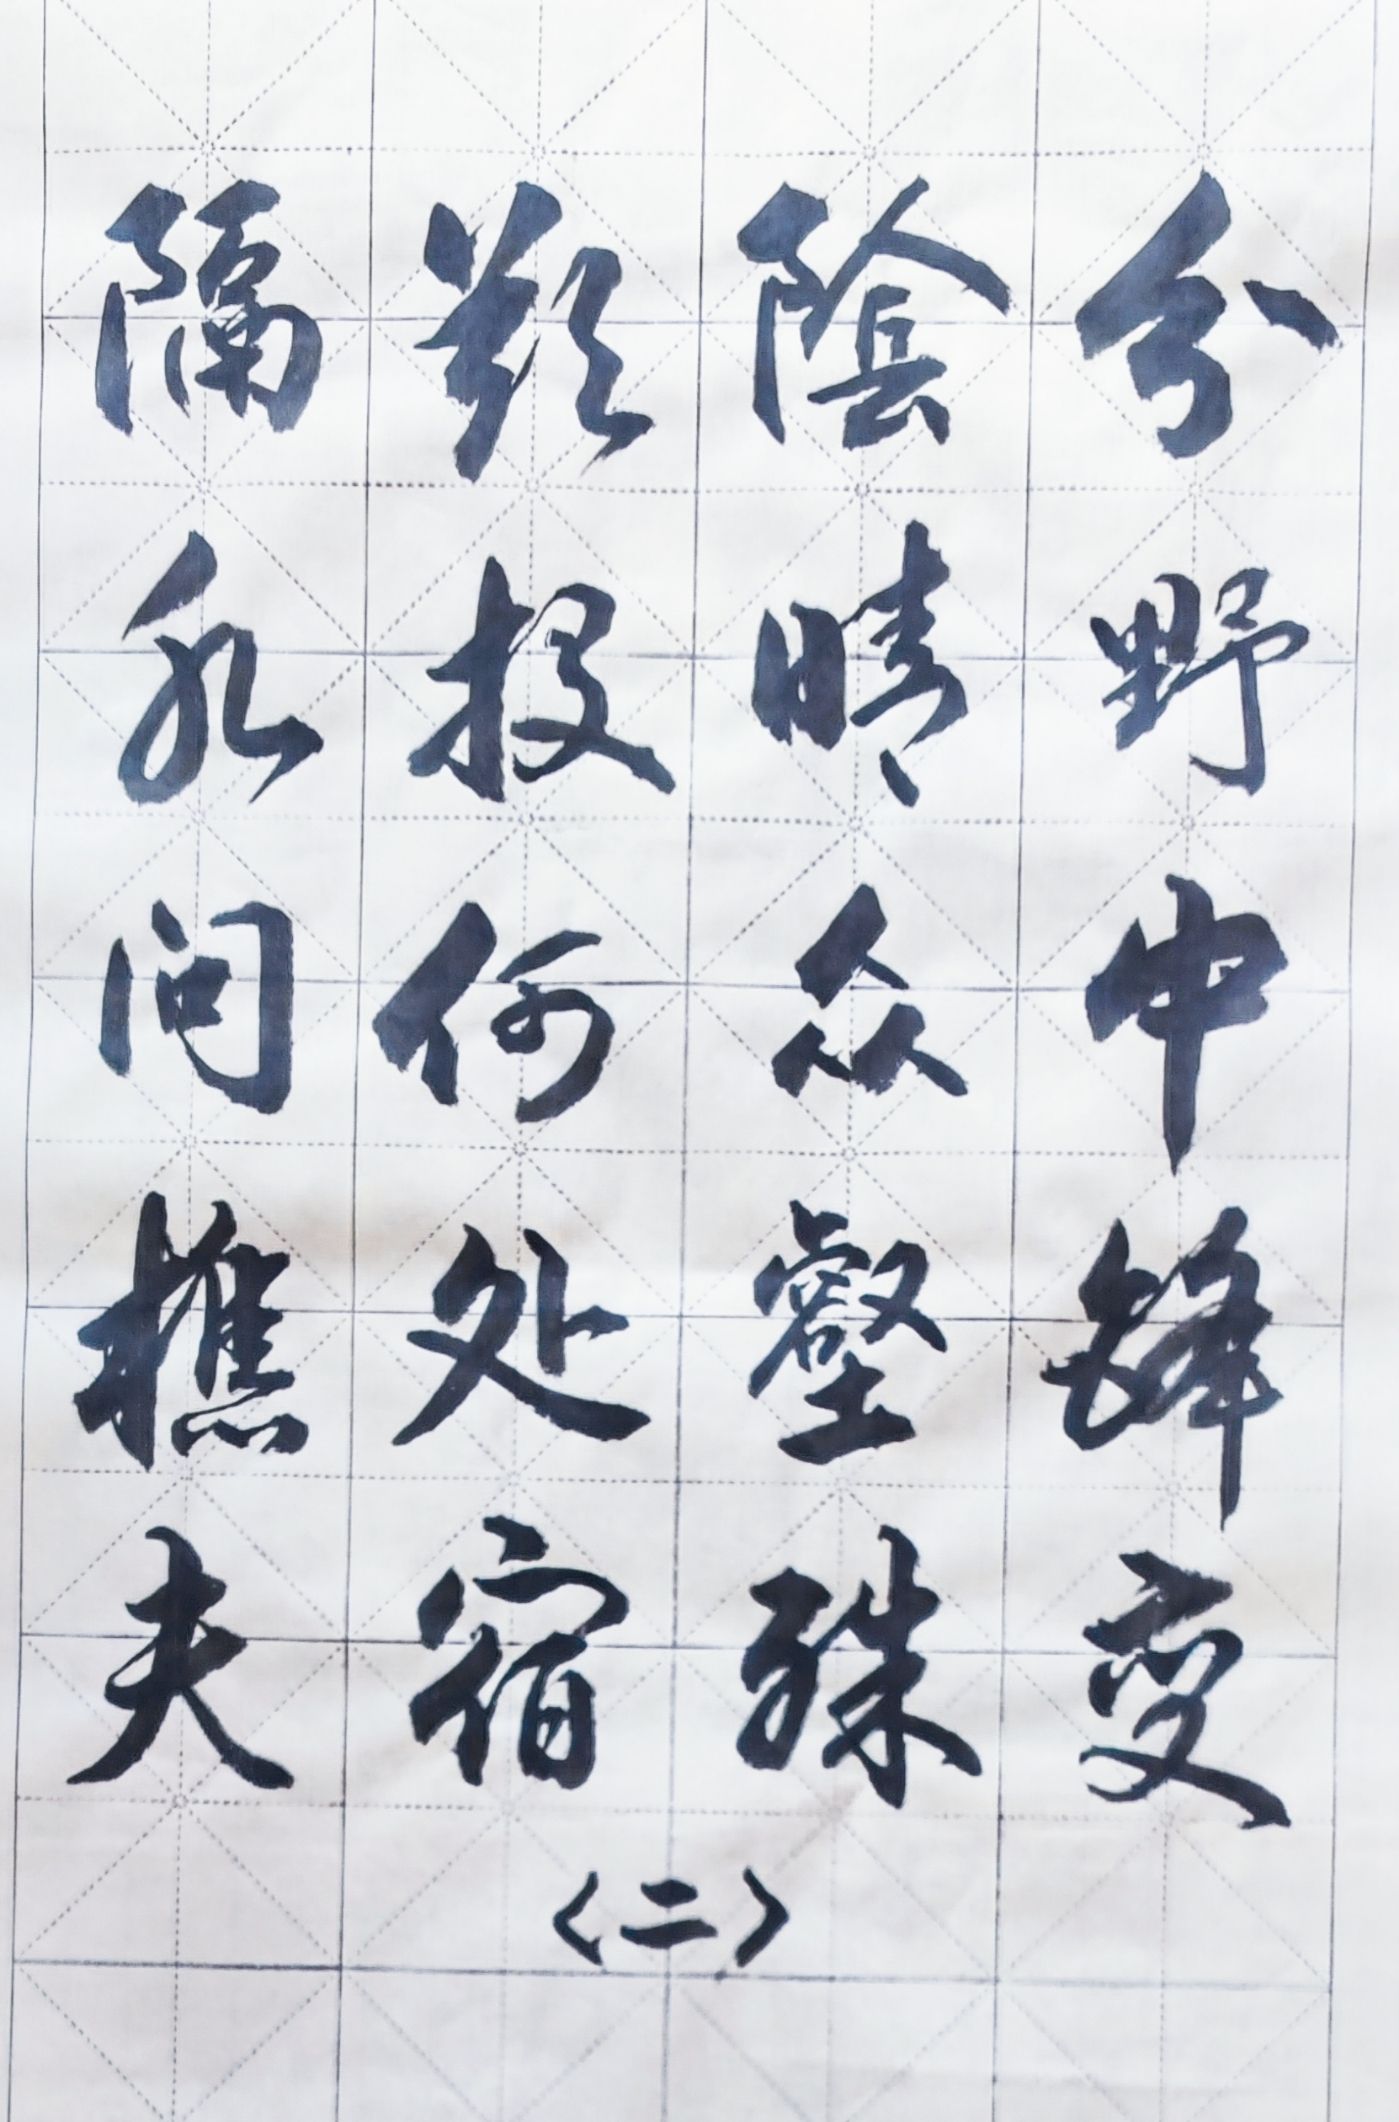 分野中峰变
陰晴众壑殊
欲投何处宿
隔水问樵夫
〈二〉